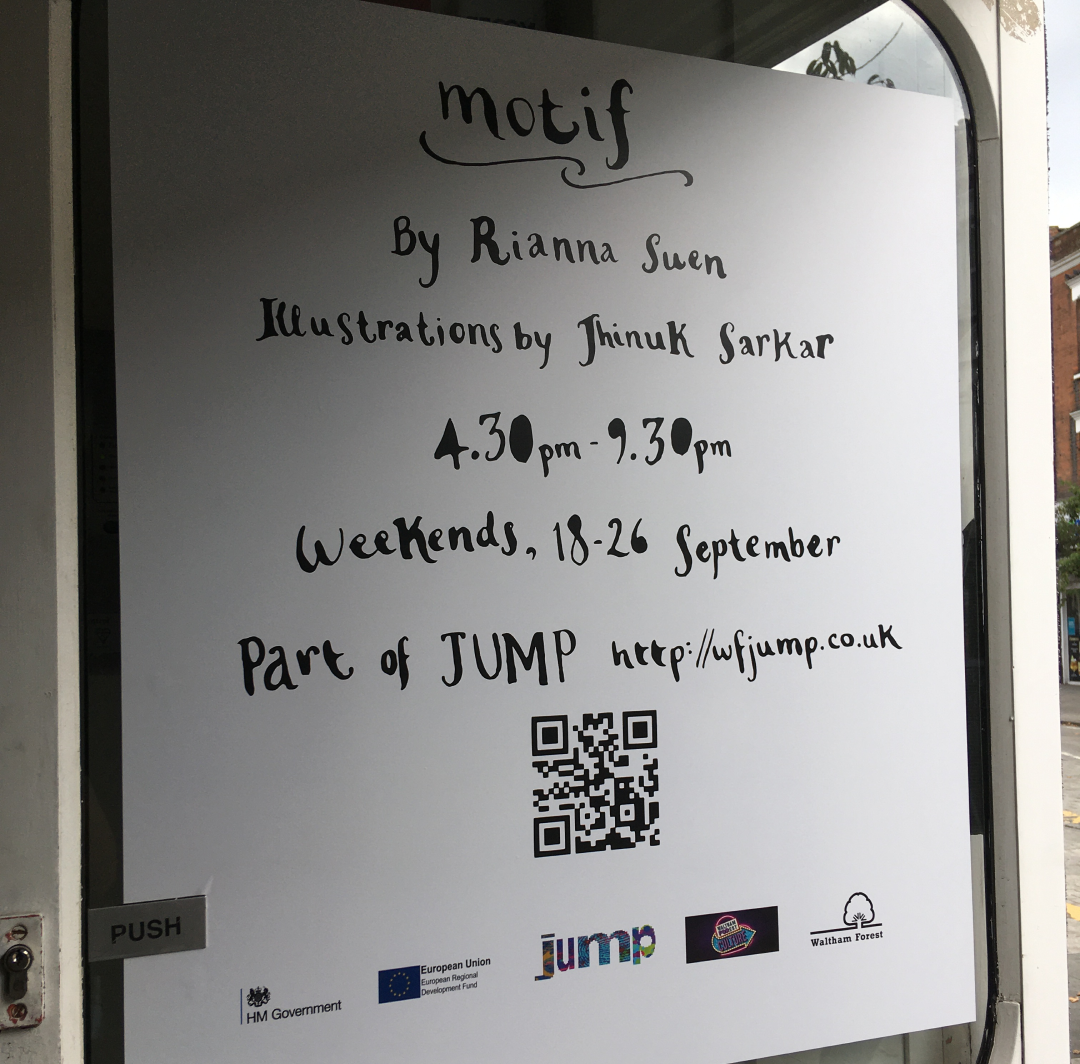 motif
By Rianna Suen
Illustrations by Jhinuk Sarkar
4.30pm - 9.30pm
Weekends, 18-26 September
Part of JUMP http://wfjump.co.uk
PUSH
HM Government
European Union
European Regional
Development Fund
jump
Waltham Forest